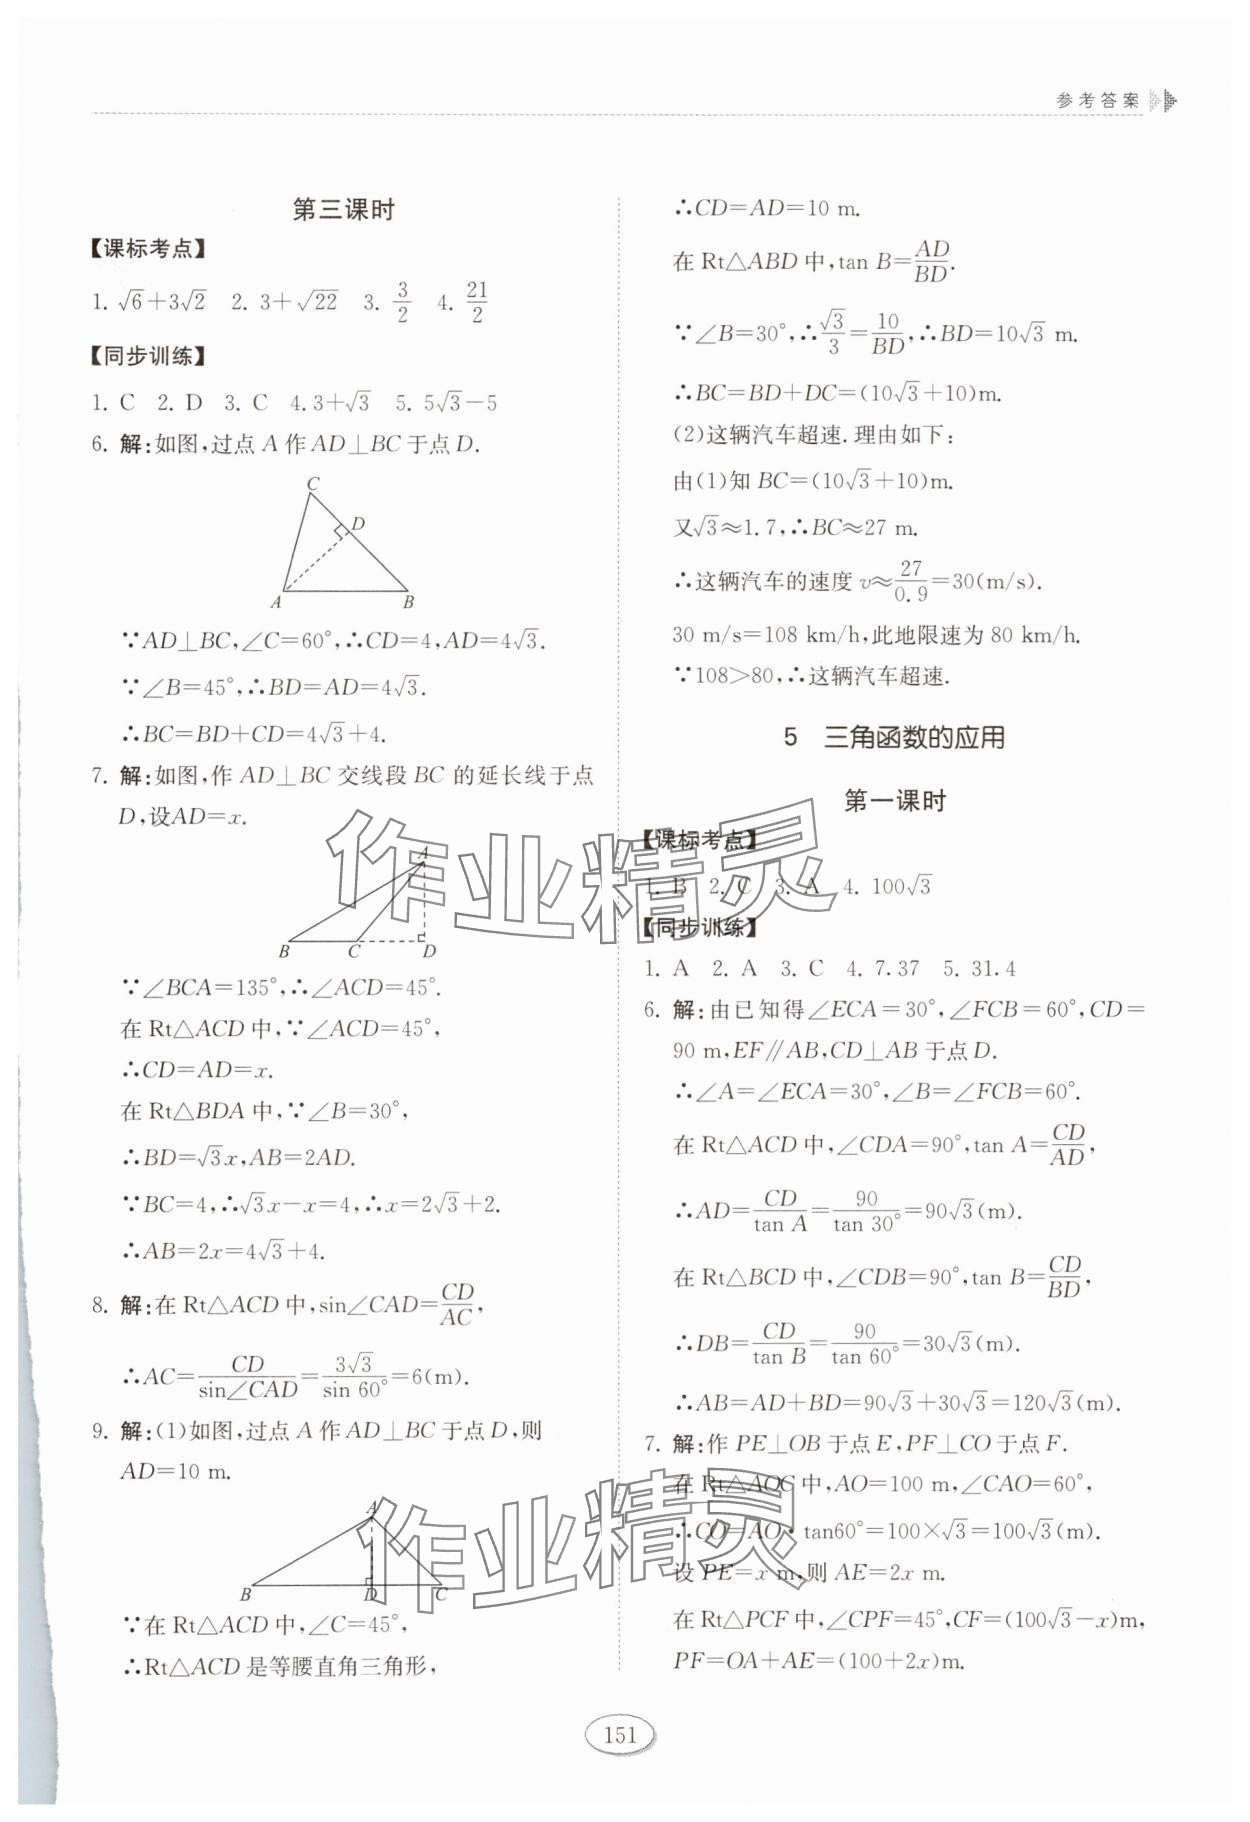 参考答案
第三课时
【课标考点】
1. √6+3√2 2. 3+√22 3. 3/2 4. 21/2
【同步训练】
1. C 2. D 3. C 4. 3+√3 5. 5√3-5
6. 解:如图,过点 A 作 AD⊥BC 于点 D.
C
D
A
B
∵AD⊥BC,∠C=60°,∴CD=4,AD=4√3.
∵∠B=45°,∴BD=AD=4√3.
∴BC=BD+CD=4√3+4.
7. 解:如图,作 AD⊥BC 交线段 BC 的延长线于点
D,设AD=x.
A
B C D
∵∠BCA=135°,∴∠ACD=45°.
在 Rt△ACD 中,∵∠ACD=45°,
∴CD=AD=x.
在 Rt△BDA 中,∵∠B=30°,
∴BD=√3x,AB=2AD.
∵BC=4,∴√3x-x=4,∴x=2√3+2.
∴AB=2x=4√3+4.
8. 解:在 Rt△ACD 中,sin∠CAD=CD/AC,
∴AC=CD/sin∠CAD=3√3/sin 60°=6(m).
9. 解:(1)如图,过点 A 作 AD⊥BC 于点 D,则
AD=10 m.
A
B D C
∵在 Rt△ACD 中,∠C=45°,
∴Rt△ACD 是等腰直角三角形,
∴CD=AD=10 m.
在 Rt△ABD 中,tan B=AD/BD.
∵∠B=30°,∴√3/3=10/BD,∴BD=10√3 m.
∴BC=BD+DC=(10√3+10)m.
(2)这辆汽车超速.理由如下:
由(1)知 BC=(10√3+10)m.
又√3≈1.7,∴BC≈27 m.
∴这辆汽车的速度 v≈27/0.9=30(m/s).
30 m/s=108 km/h,此地限速为 80 km/h.
∵108>80,∴这辆汽车超速.
5 三角函数的应用
第一课时
【课标考点】
1. B 2. C 3. A 4. 100√3
【同步训练】
1. A 2. A 3. C 4. 7.37 5. 31.4
6. 解:由已知得∠ECA=30°,∠FCB=60°,CD=
90 m,EF∥AB,CD⊥AB 于点 D.
∴∠A=∠ECA=30°,∠B=∠FCB=60°.
在 Rt△ACD 中,∠CDA=90°,tan A=CD/AD,
∴AD=CD/tan A=90/tan 30°=90√3(m).
在 Rt△BCD 中,∠CDB=90°,tan B=CD/BD,
∴DB=CD/tan B=90/tan 60°=30√3(m).
∴AB=AD+BD=90√3+30√3=120√3(m).
7. 解:作 PE⊥OB 于点 E,PF⊥CO 于点 F.
在 Rt△AOC 中,AO=100 m,∠CAO=60°,
∴CO=AO·tan60°=100×√3=100√3(m).
设 PE=x m,则 AE=2x m.
在 Rt△PCF 中,∠CPF=45°,CF=(100√3-x)m,
PF=OA+AE=(100+2x)m.
151
作业精灵
作业精灵